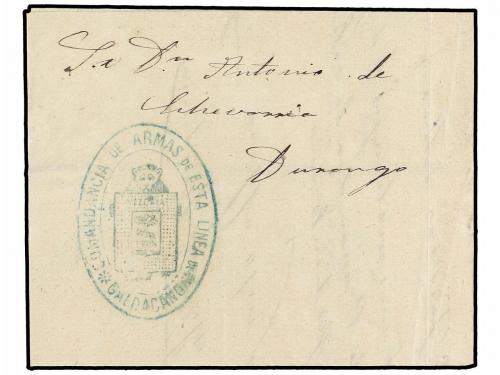 Sr. Dn. Antonio de
Echevarria
Durango
COMANDANCIA DE ARMAS DE ESTA LINEA DE
GALDACANO
VIZCAYA